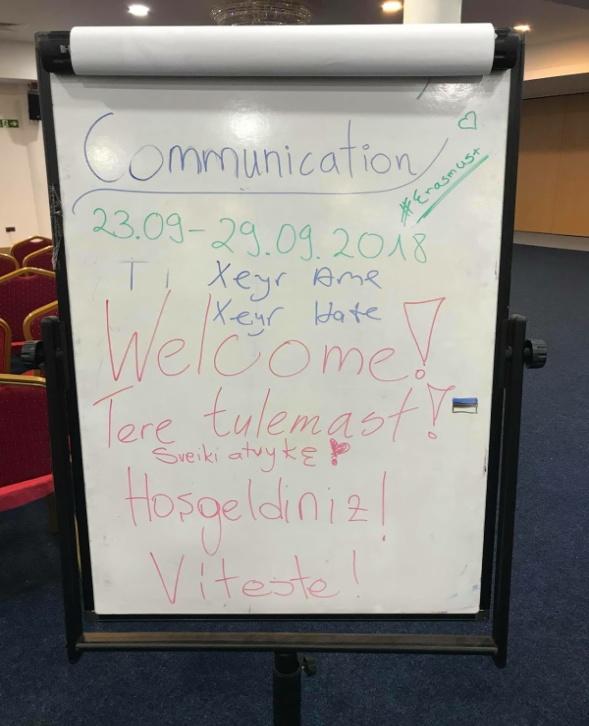 Communication
#Erasmus+
23.09-29.09.2018
Xeyr Ame
Xeyr Hate
Welcome!
Tere tulemast!
Sveiki atvykę!
Hoşgeldiniz!
Viteste!